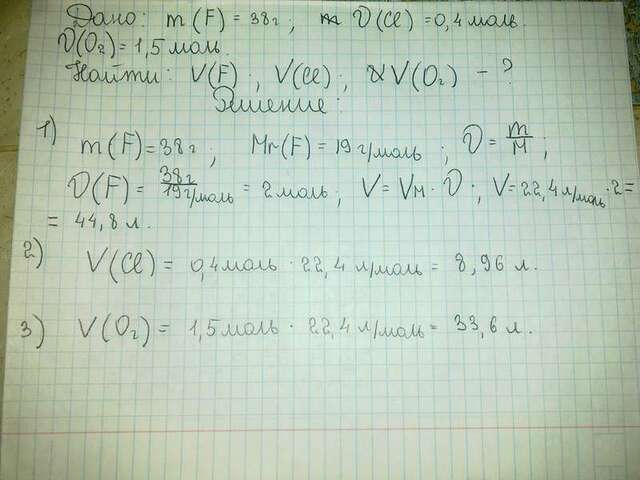 Дано: m(F) = 38г; ν(Cl) = 0,4 моль.
ν(O₂) = 1,5 моль.
Найти: V(F), V(Cl); V(O₂) - ?
Решение:
1) m(F) = 38г; Mr(F) = 19 г/моль; ν = m/M;
ν(F) = 38г/19г/моль = 2 моль; V = Vм · ν; V = 22,4 л/моль · 2 =
= 44,8 л.
2) V(Cl) = 0,4 моль · 22,4 л/моль = 8,96 л.
3) V(O₂) = 1,5 моль · 22,4 л/моль = 33,6 л.